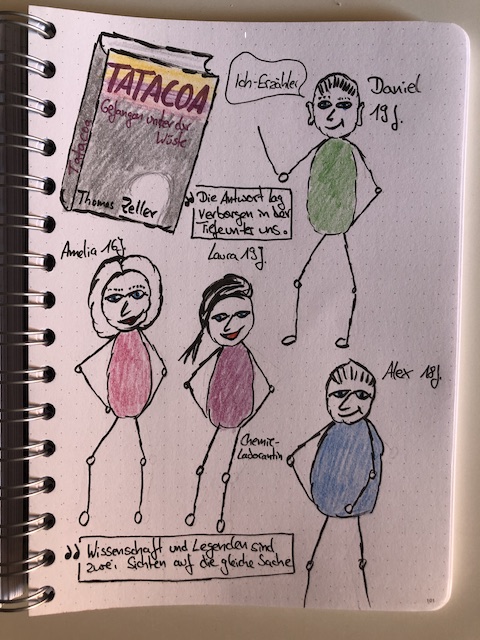 TATACOA
Gefangen unter der
Wüste
Tatacoa
Thomas Zeller
Ich-Erzähler
Daniel
19 J.
„Die Antwort lag
verborgen in der
Tiefe unter uns.
Amelia 16 J.
Laura 19 J.
Chemie-
Laborantin
Alex 18 J.
„Wissenschaft und Legenden sind
zwei Sichten auf die gleiche Sache